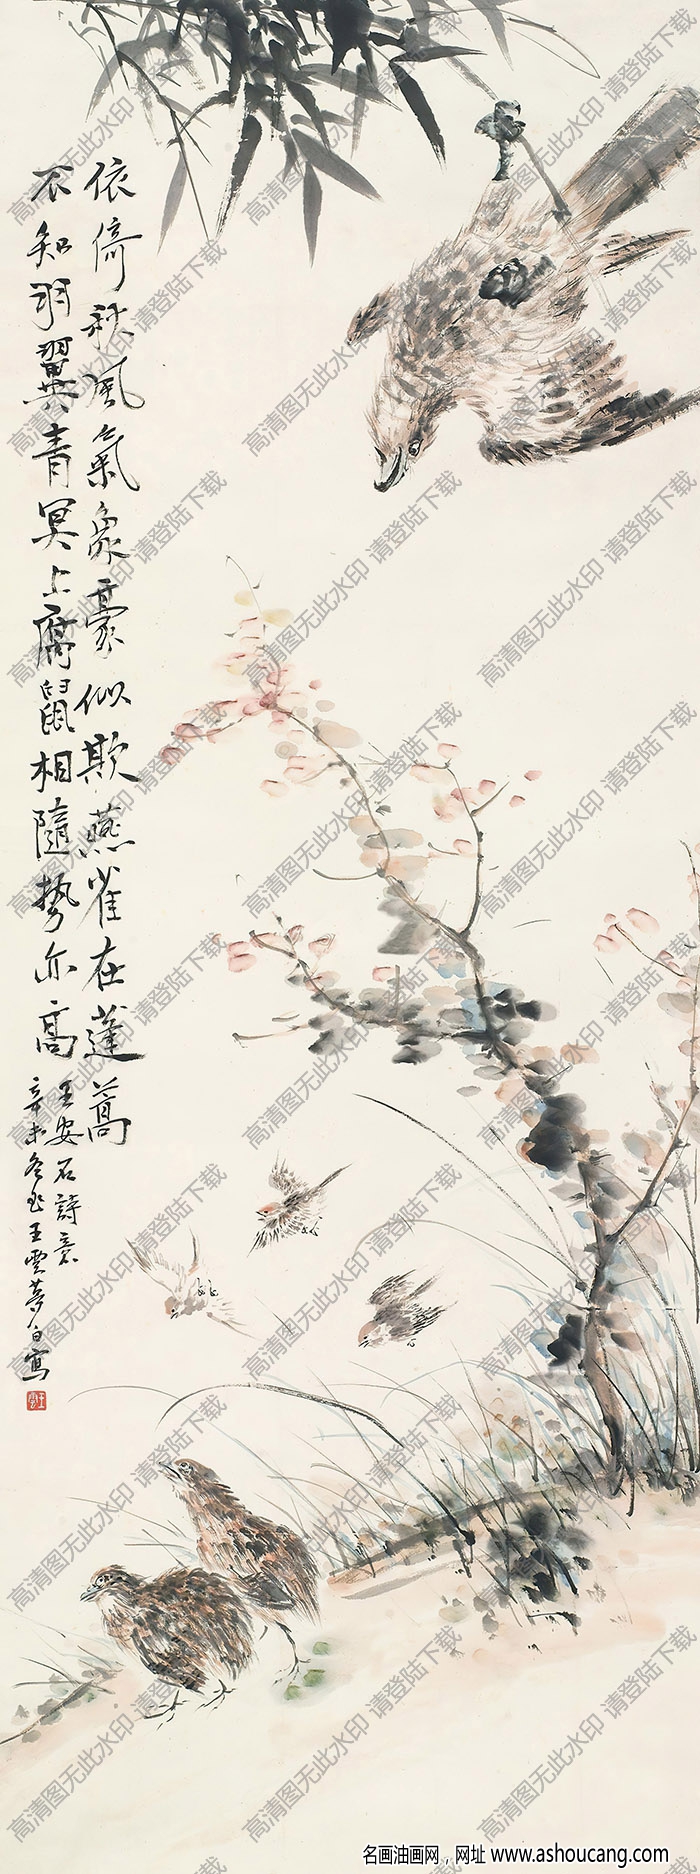 依倚秋風氣象豪似欺燕雀在蓬蒿
不知羽翼青冥上腐鼠相隨勢亦高
王安石詩意
辛未冬北王雲夢白寫
王雲
高清图无此水印 请登陆下载
名画油画网，网址 www.ashoucang.com